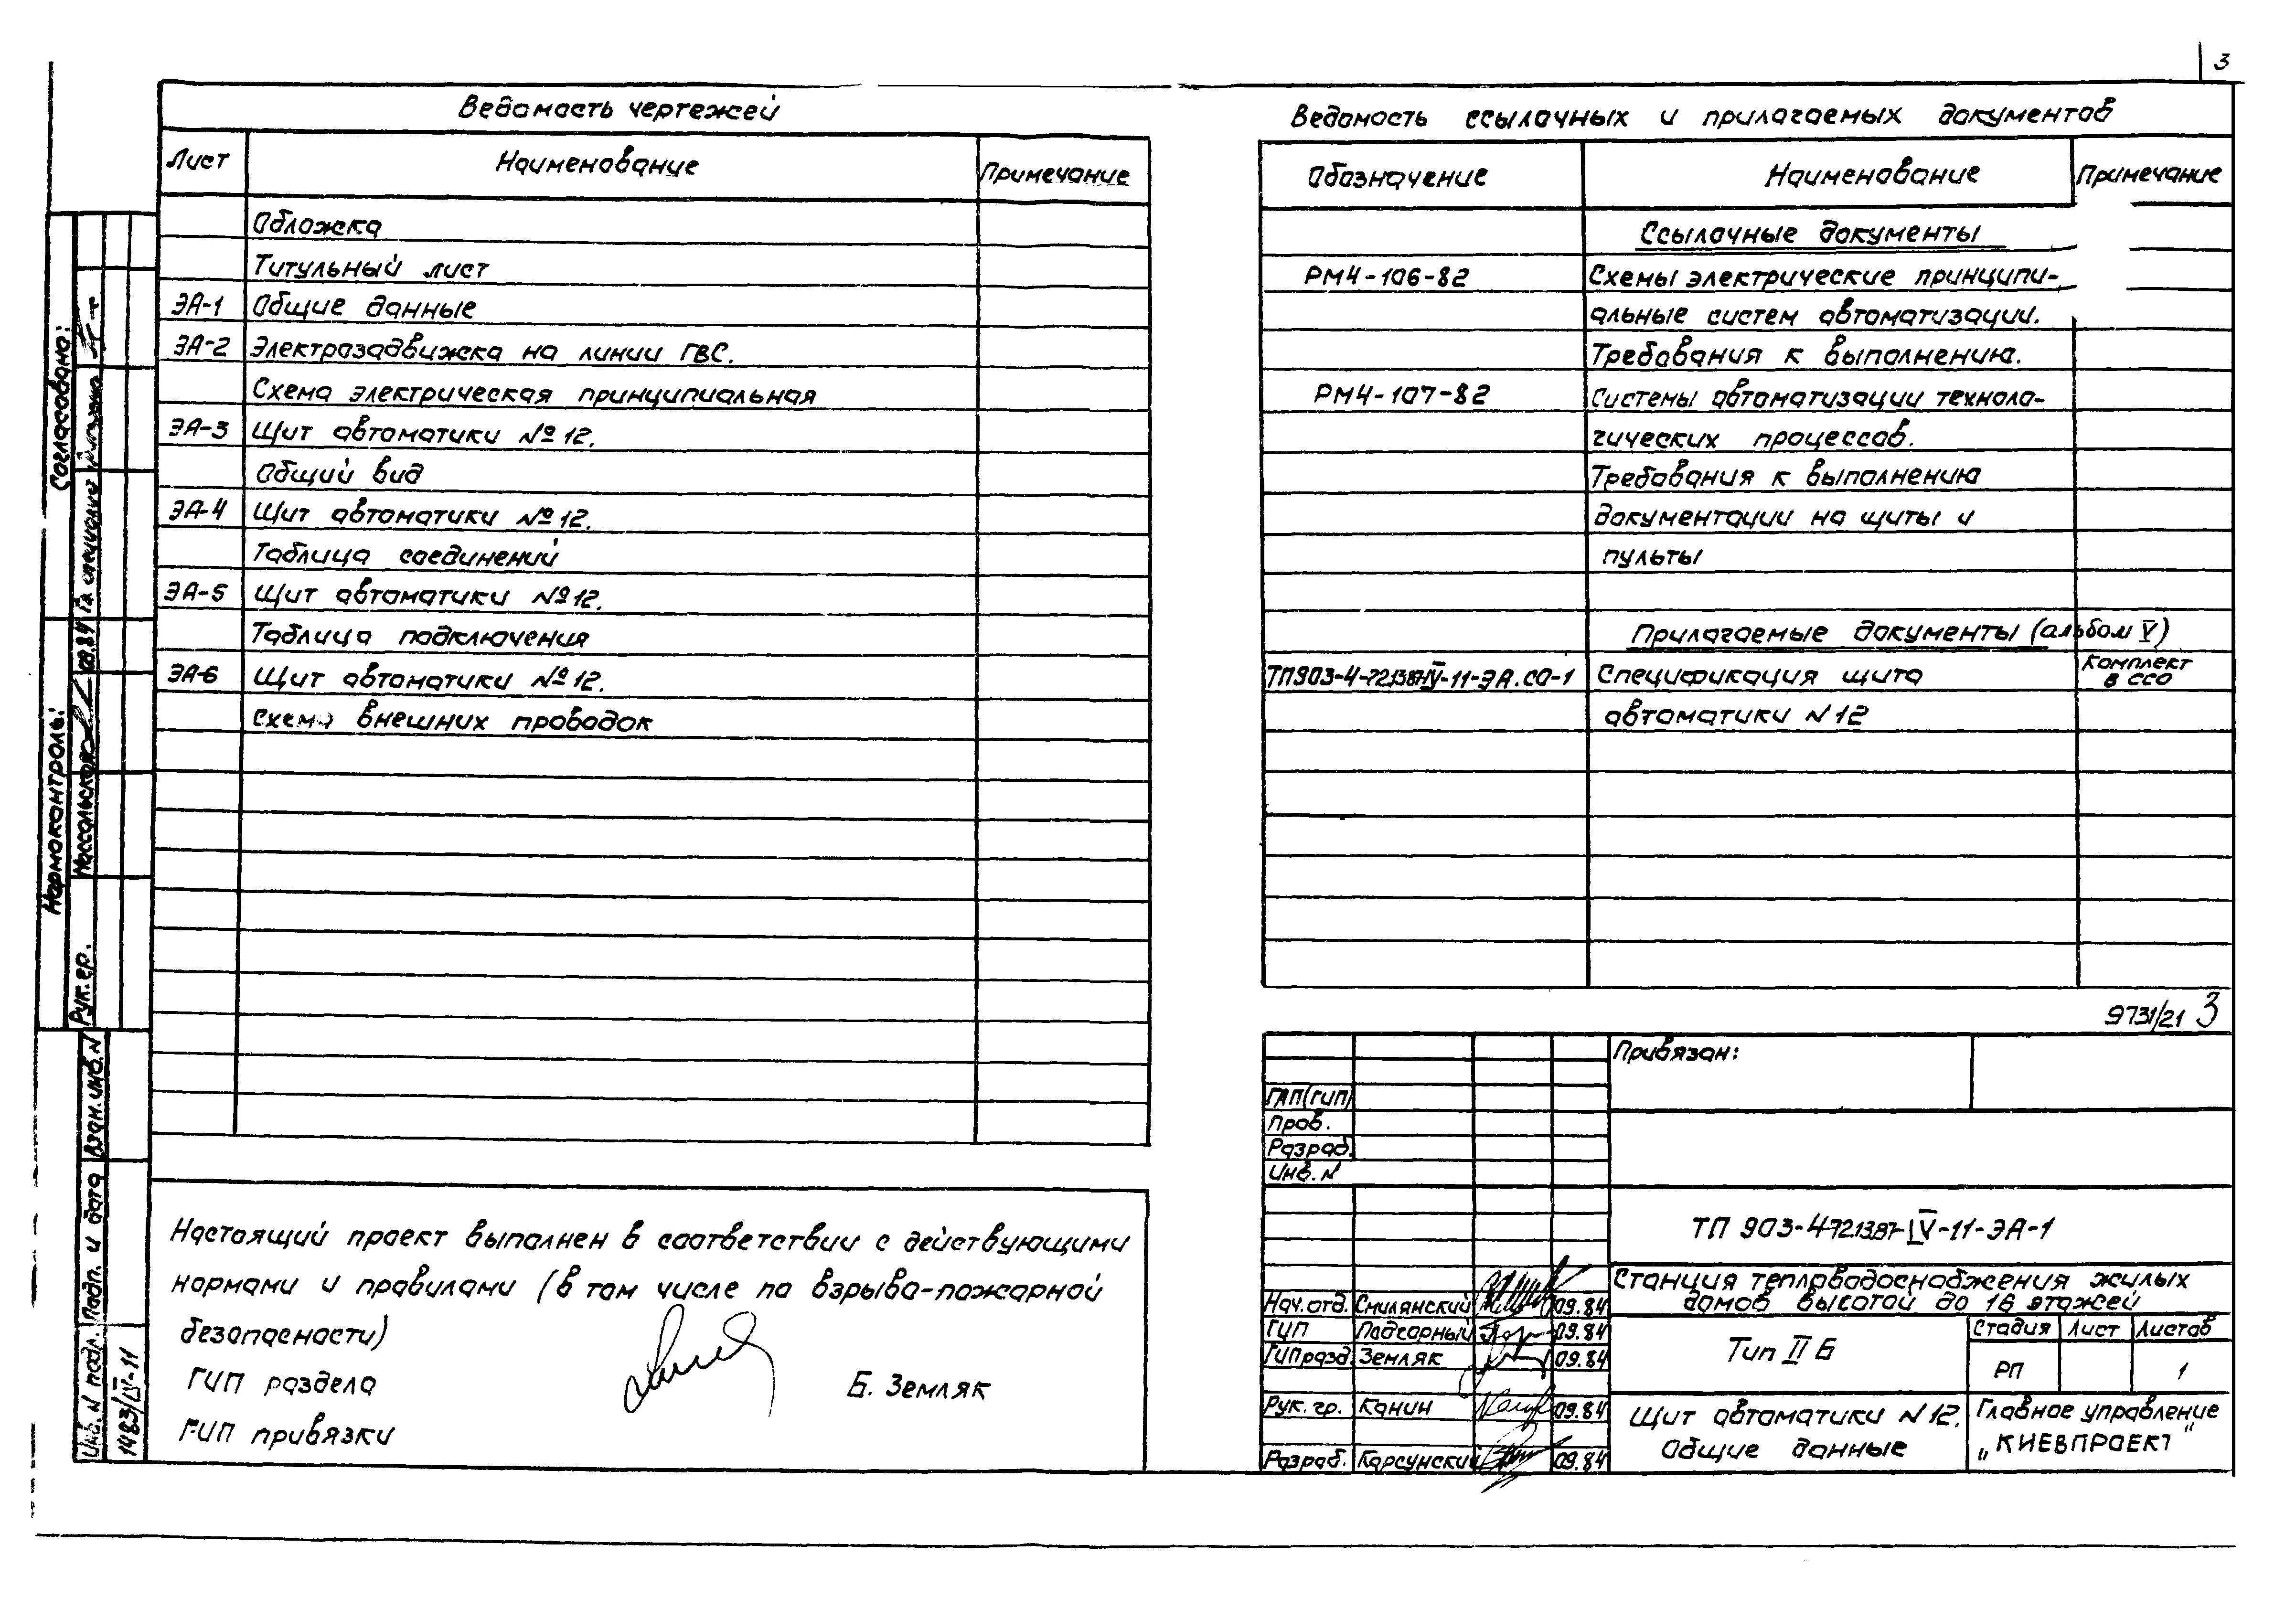 3
Ведомость чертежей
Лист Наименование Примечание
Обложка
Титульный лист
ЭА-1 Общие данные
ЭА-2 Электрозадвижка на линии ГВС.
Схема электрическая принципиальная
ЭА-3 Щит автоматики №12.
Общий вид
ЭА-4 Щит автоматики №12.
Таблица соединений
ЭА-5 Щит автоматики №12.
Таблица подключения
ЭА-6 Щит автоматики №12.
Схема внешних проводок
Настоящий проект выполнен в соответствии с действующими
нормами и правилами (в том числе по взрыво-пожарной
безопасности)
ГИП раздела Б. Земляк
ГИП привязки
Ведомость ссылочных и прилагаемых документов
Обозначение Наименование Примечание
Ссылочные документы
РМ4-106-82 Схемы электрические принципи-
альные систем автоматизации.
Требования к выполнению.
РМ4-107-82 Системы автоматизации техноло-
гических процессов.
Требования к выполнению
документации на щиты и
пульты
Прилагаемые документы (альбом V)
ТП903-4-72.13.87-IV-11-ЭА.СО-1 Спецификация щита Комплект
в ССО
автоматики N12
9731/21 3
Привязан:
ГАП(ГИП)
Пров.
Разраб.
Инв. N
ТП 903-4-72.13.87-IV-11-ЭА-1
Станция тепловодоснабжения жилых
домов высотой до 16 этажей
Нач. отд. Смилянский 09.84
ГИП Подгорный 09.84
ГИП разд. Земляк 09.84
Рук. гр. Канин 09.84
Разраб. Карсунский 09.84
Тип II Б
Стадия Лист Листов
РП 1
Щит автоматики N12.
Общие данные
Главное управление
„КИЕВПРОЕКТ"
Согласовано:
Гл. специалист
Нормоконтроль:
Рук. гр. 09.84
Взан. инв. N
Подп. и дата
Инв. N подл.
1483/IV-11